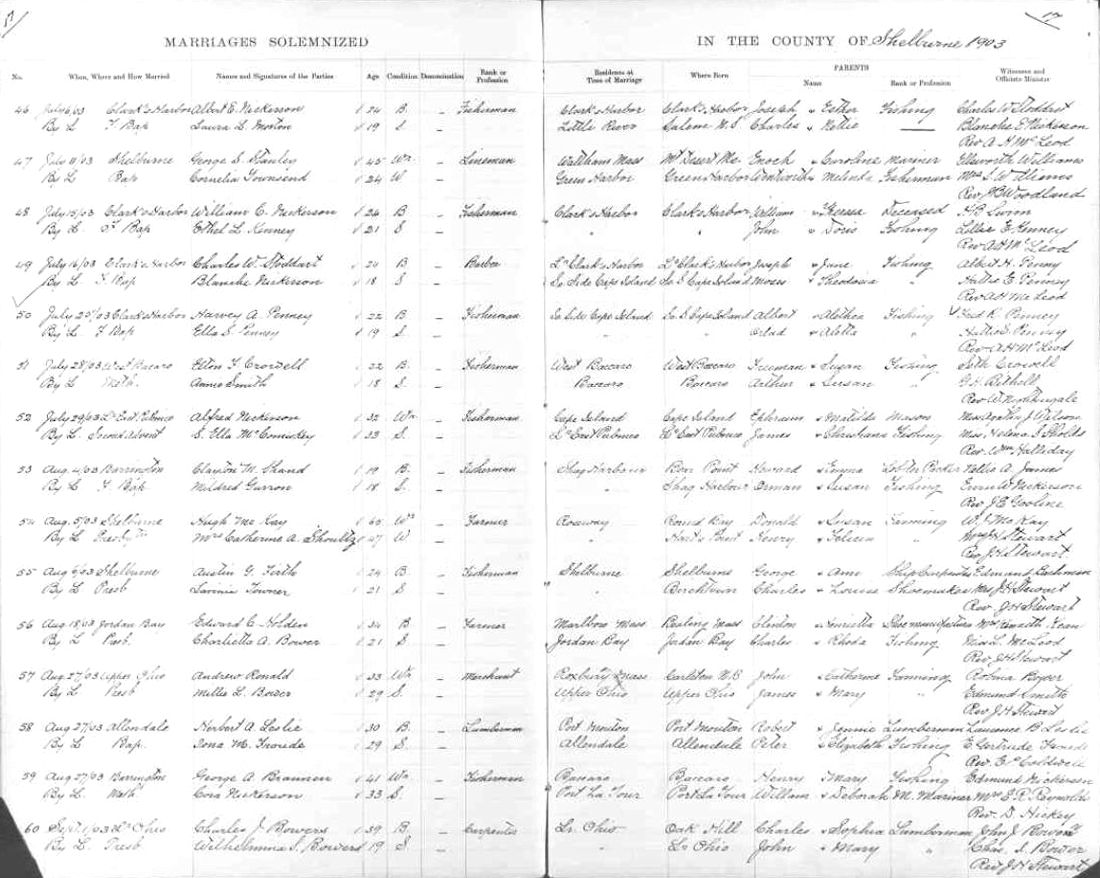 17 17
MARRIAGES SOLEMNIZED IN THE COUNTY OF Shelburne 1903
No. When, Where and How Married Names and Signatures of the Parties Age Condition Denomination Rank or Profession Residence at Time of Marriage Where Born PARENTS Name Rank or Profession Witnesses and Officiate Minister
46 July 6/03 Clark's Harbor Albert E. Nickerson 24 B. – Fisherman Clark's Harbor Clark's Harbor Joseph & Esther Fishing Charles W. Stoddart
By L. F. Bap Laura L. Morton 19 S – Little River Salem N.S Charles & Nettie — Blanche E Nickerson
Rev A H McLeod
47 July 11/03 Shelburne George S. Stanley 45 Wr – Lineman Waltham Mass Mt Desert Me. Enoch & Caroline Mariner Ellsworth Williams
By L Bap Cornelia Townsend 24 W – Green Harbor Green Harbor Wentworth & Melinda Fisherman Mrs S. W Williams
Rev J B Woodland
48 July 15/03 Clark's Harbor William C. Nickerson 24 B – Fisherman Clark's Harbor Clark's Harbor William & Theresa Deceased H B Swim
By L. F Bap Ethel L Kenney 21 S. – " " John & Doris Fishing Lillie E Kenney
Rev A H McLeod
49 July 16/03 Clark's Harbor Charles W. Stoddart 24 B – Barber Lr Clark's Harbor Lr Clark's Harbor Joseph & Jane Fishing Albert H. Penny
By L. F Bap Blanche Nickerson 18 S – So Side Cape Island So S Cape Island Moses & Theodosia " Hattie E Penney
Rev A H McLeod
50 July 25/03 Clark's Harbor Harvey A Penney 22 B – Fisherman So Side Cape Island So S Cape Island Albert & Fishing K. Penney
By L. F Bap Ella S Penney 19 S. – " " & Aletta " Hattie E Penney
Rev A H McLeod
51 July 28/03 West Baccaro Elton F Crowell 22 B – Fisherman West Baccaro West Baccaro Freeman & Susan Fishing Seth Crowell
By L Meth. Annie Smith 18 S. – Baccaro Baccaro Arthur & Susan "
Rev W. Nightingale
52 July 29/03 Lr East Pubnico Alfred Nickerson 32 Wr – Fisherman Cape Island Cape Island Ephraim & Matilda Mason Miss J Nelson
By L. Second Advent S. Ella McComiskey 33 S. – Lr East Pubnico Lr East Pubnico James & Fishing Miss Helena S
Rev. Wm Halliday
53 Aug 4/03 Barrington Clayton M. Shand 19 B. – Fisherman Shag Harbour Bear Point Howard & Emma Lobster Packer Nellie A. James
By L F Bap Mildred 18 S. – " Shag Harbour & Susan Fishing Nickerson
Rev J E Gosline
54 Aug 5/03 Shelburne Hugh McKay 65 Wr – Farmer Roseway Round Bay Donald & Susan Farming W J McKay
By L Presbytn Mrs Catherine A. Shoultz 47 W – " Hart's Point Henry & " Mrs J H Stewart
Rev J H Stewart
55 Aug 6/03 Shelburne Austin G. Firth 24 B. – Fisherman Shelburne Shelburne George & Ann Ship Carpenter Edmund
By L Presb Lavinia Towner 21 S. – " Birchtown Charles & Louisa Shoemaker Mrs J H Stewart
Rev J H Stewart
56 Aug 18/03 Jordan Bay Edward C. Holden 34 B – Farmer Marlboro Mass Mass & Henrietta Shoe manufacture Mrs Kenneth
By L. Presb. Charlietta A. Bower 21 S – Jordan Bay Jordan Bay Charles & Rhoda Fishing Miss L. McLeod
Rev J H Stewart
57 Aug 27/03 Upper Ohio Andrew Ronald 33 Wr – Merchant Roxbury Mass Carleton N.B John & Catherine Farming Robina Bower
By L Presb Millie L. Bower 29 S – Upper Ohio Upper Ohio James & Mary " Edmund Smith
Rev J H Stewart
58 Aug 27/03 Allendale Herbert A. Leslie 30 B. – Lumberman Port Mouton Port Mouton Robert & Jennie Lumberman Laurence B Leslie
By L Bap. Iona M. Froude 29 S. – Allendale Allendale Peter & Elizabeth Fishing E Gertrude Froude
Rev. E P Coldwell
59 Aug 27/03 Barrington George A. Brannen 41 Wr – Fisherman Baccaro Baccaro Henry & Mary Fishing Edmund Nickerson
By L Meth Cora Nickerson 33 S. – Port La Tour Port La Tour William & Deborah M. Mariner Mrs E. R. Reynolds
Rev. D. Hickey
60 Sept. 1/03 Lr Ohio Charles J Bowers 39 B. – Carpenter Lr. Ohio Oak Hill Charles & Sophia Lumberman John J Bower
By L. Presb Wilhelmina S. Bowers 19 S – " Lr Ohio John & Mary " Chas. S. Bower
Rev J H Stewart